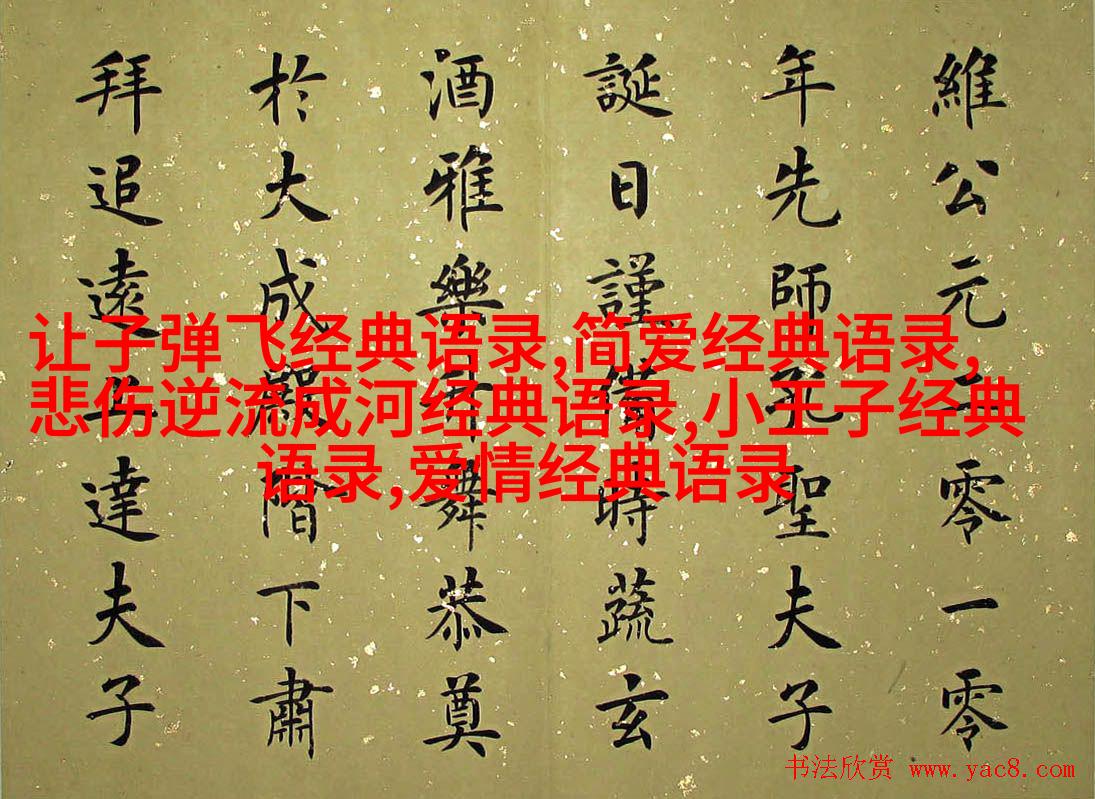 維公元二零一零
年先師孔聖夫子
誕日謹備時蔬玄
酒雅樂佾舞恭奠
於大成殿階下肅
拜追遠 達夫子
让子弹飞经典语录,简爱经典语录,
悲伤逆流成河经典语录,小王子经典
语录,爱情经典语录
书法欣赏 www.yac8.com